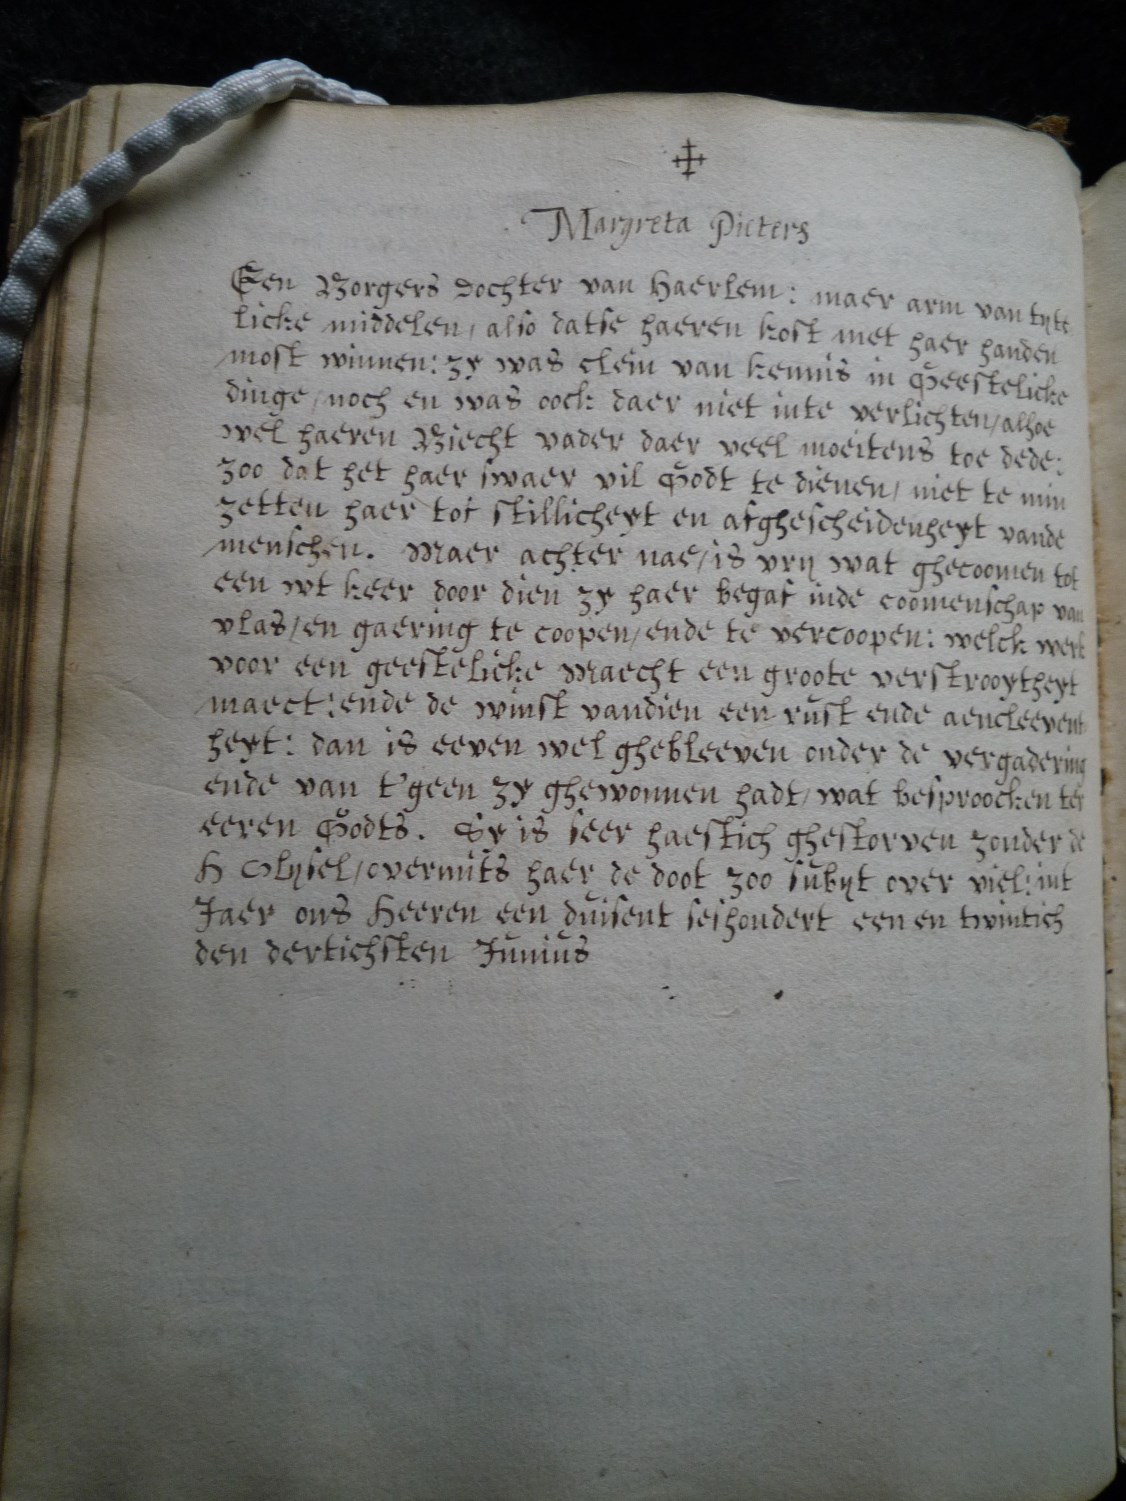 Margreta Pieters
Een Borgers dochter van Haerlem: maer arm van tyte
licke middelen, also datse haeren kost met haer handen
most winnen: zy was clein van kennis in Geestelicke
dinge, noch en was oock daer niet inte verlichten, alhoe
wel haeren Biecht vader daer veel moeitens toe dede:
zoo dat het haer swaer vil Godt te dienen, niet te min
zetten haer tot stillicheyt en afghescheidenheyt vande
menschen. Maer achter nae, is vry wat ghecoomen tot
een wt keer door dien zy haer begaf inde coomenschap van
vlas, en gaering te coopen, ende te vercoopen: welck werk
voor een geestelicke Maecht een groote verstrooytheyt
maect: ende de winst vandien een rust ende aencleevent
heyt: dan is eeven wel ghebleeven onder de vergadering
ende van t'geen zy ghewonnen hadt, wat besproocken ter
eeren Godts. Sy is seer haestich ghestorven zonder de
H Olysel, overmits haer de doot zoo subyt over viel: int
Jaer ons Heeren een duisent seshondert een en twintich
den dertichsten Junius